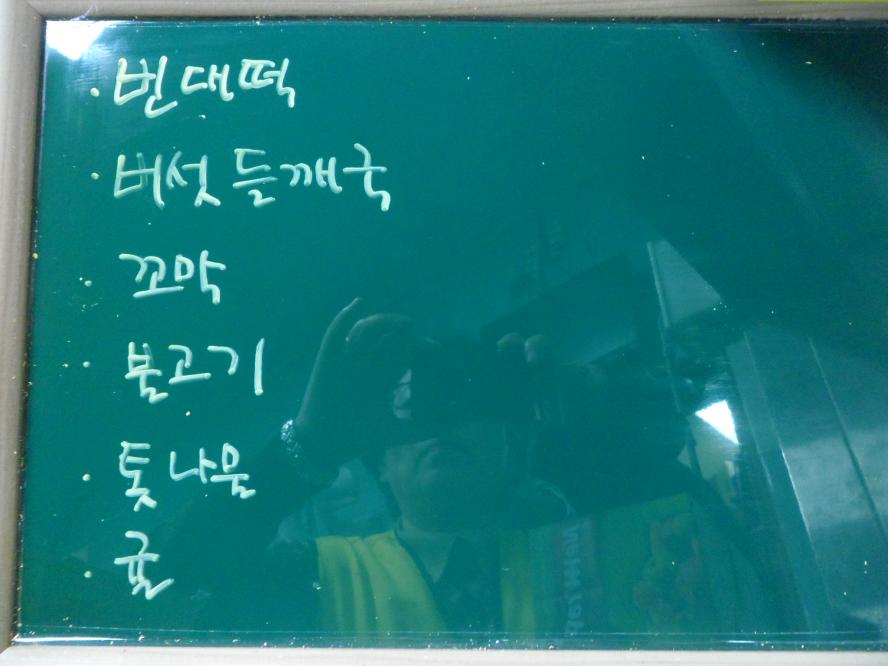 · 빈대떡
· 버섯들깨국
· 꼬막
· 불고기
· 톳나물
· 귤